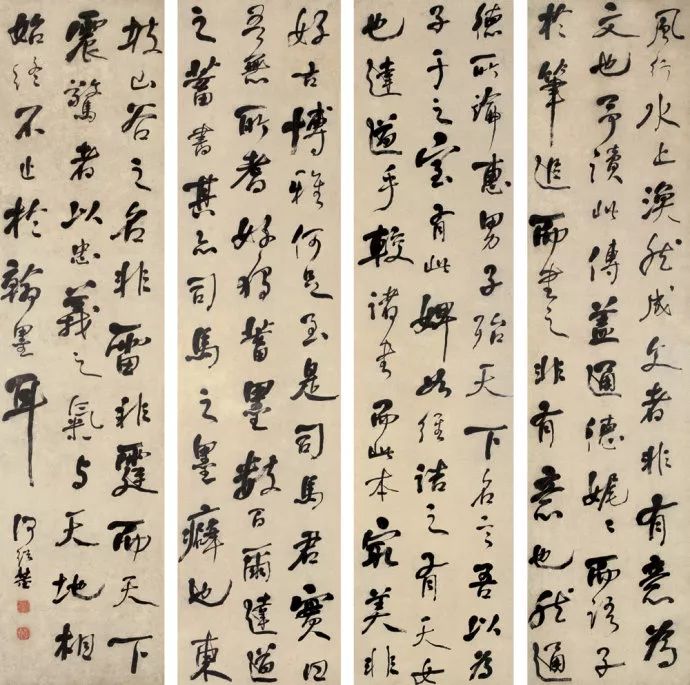 風行水上渙然成文者非有意為
文也予讀此傳蓋通德娓〻而語子
於筆追而書之非有意也然通
德所論惠男子殆天下名言吾以為
子于之室有此婢如維詰之有天女
也達道手較諸書而此本最美非
好古博雅何足至是司馬君實曰
吾無所嗜好獨蓄墨數百爾達道
之蓄書其亦司馬之墨癖也東
坡山谷之名非雷非霆而天下
震驚者以忠義之氣与天地相
始終不止於翰墨耳
何紹基